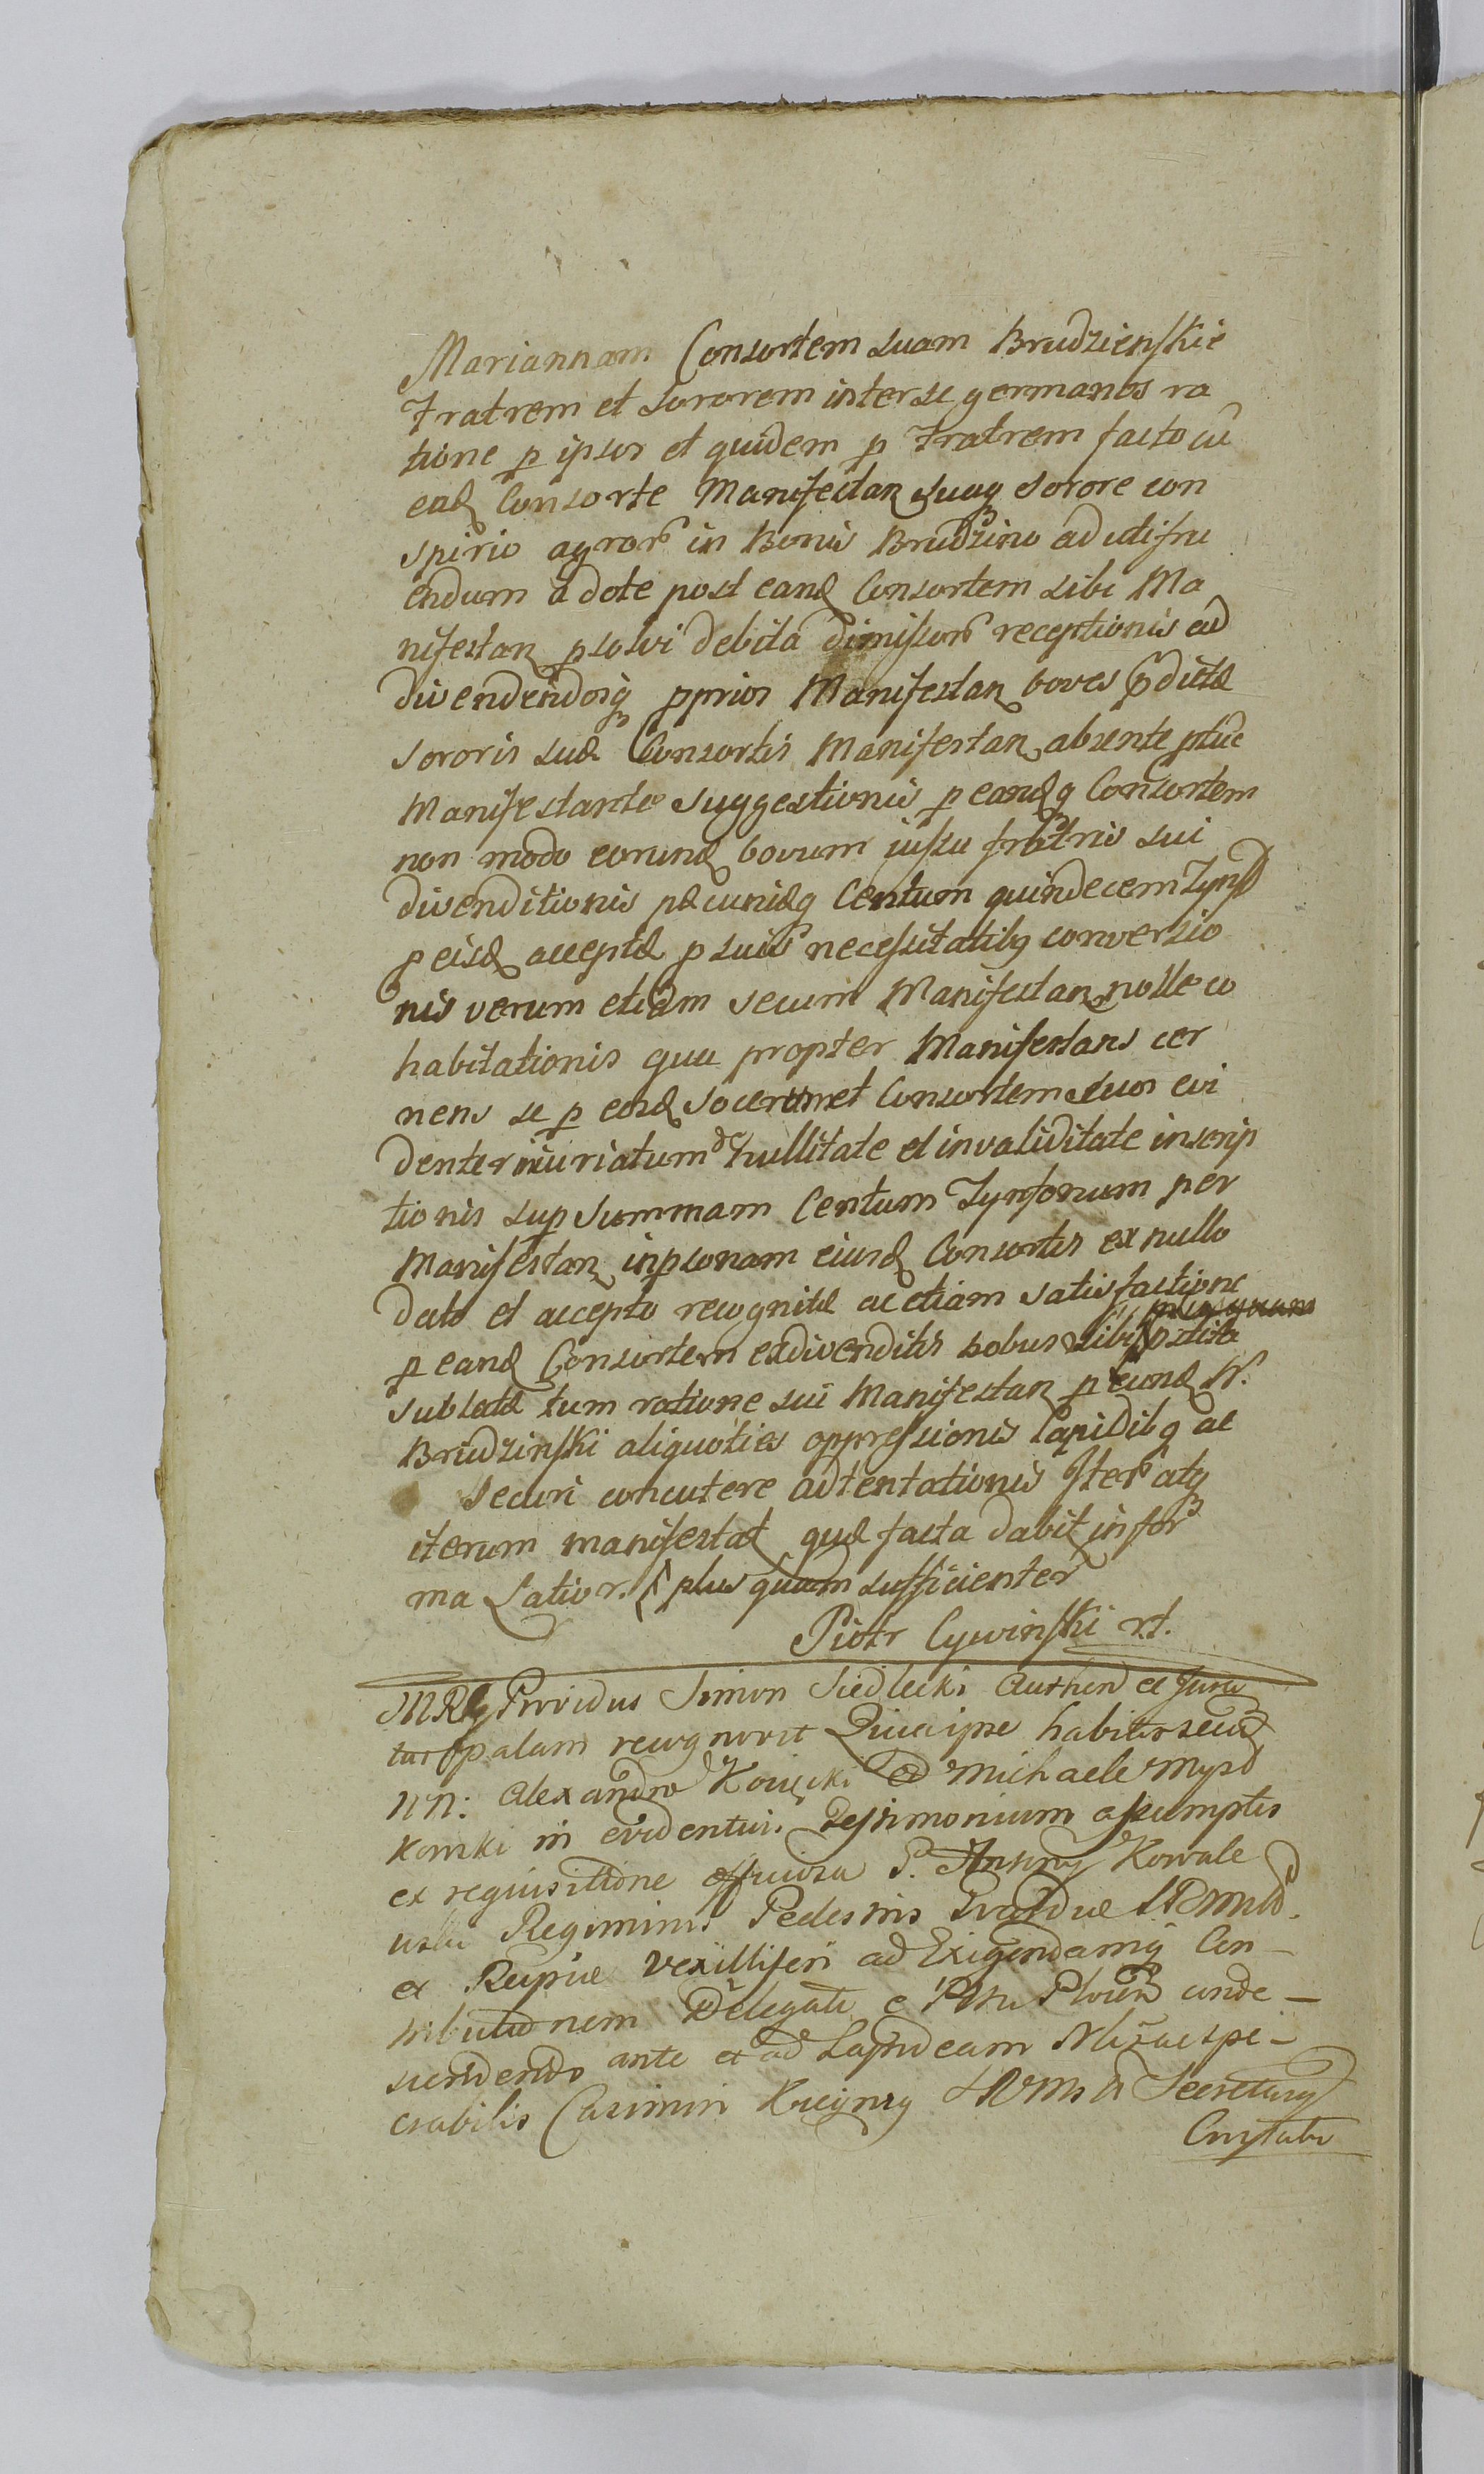 Mariannam Consortem suam Brudzienskie
Fratrem et Sororem inter se germanos ra
tione p ipsos et quidem p Fratrem facto cū
eadq Consorte Manifestanq suaq Sorore con
spirio agror in Bonis Brudzino ad utifru
endum a dote post eandq Consortem sibi Ma
nifestanq psolvi debita dimissor receptionis ad
divendendosq pprios Manifestanq boves pdictæ
Sororis suæ Consortis Manifestanq absente
Manifestante suggestionis p eandq Consortem
non modo eorundq bovum iussu fratris sui
divenditionis pæcuniæq Centum quindecem Tynf
p eisdq acceptæ p suis necessitatibq conversio
nis verum etiam secum Manifestanq nolle co
habitationis qua propter Manifestans cer
nens se p eosdq socerum et Consortem suos evi
denter iniuriatum de nullitate et invaliditate inscrip
tionis sup Summam Centum Tynfonum per
Manifestanq in psonam eiusdq Consortis ex nullo
dato et accepto recognitæ ac etiam satisfactione
p eandq Consortem ex divenditis bobus sibi
sublatæ tum ratione sui Manifestanq p eundq N.
Brudzinski aliquoties oppressionis Lapidibq ac
Securi concutere adtentationis Iter atq
iterum manifestat quæ facta dabit in for
ma Latior. plus quam sufficienter
Piotr Cywinski rt.
Providus Simon Siedlecki Authen et Jura
tus palam recognovit Quia ipse habitis secum
NN: Alexandro Kosiscki et Michaele Mysd
komski in evidentius Testimonium assumptis
ex requisitione officiosa P. Antony Kowale
uski Regiminis Pedestris
et Reipue Vexilliferi ad Exigendamq Con-
tributionem Delegati e conde-
scendendo ante et ad Lapideam
ctabilis Casimiri Secretary